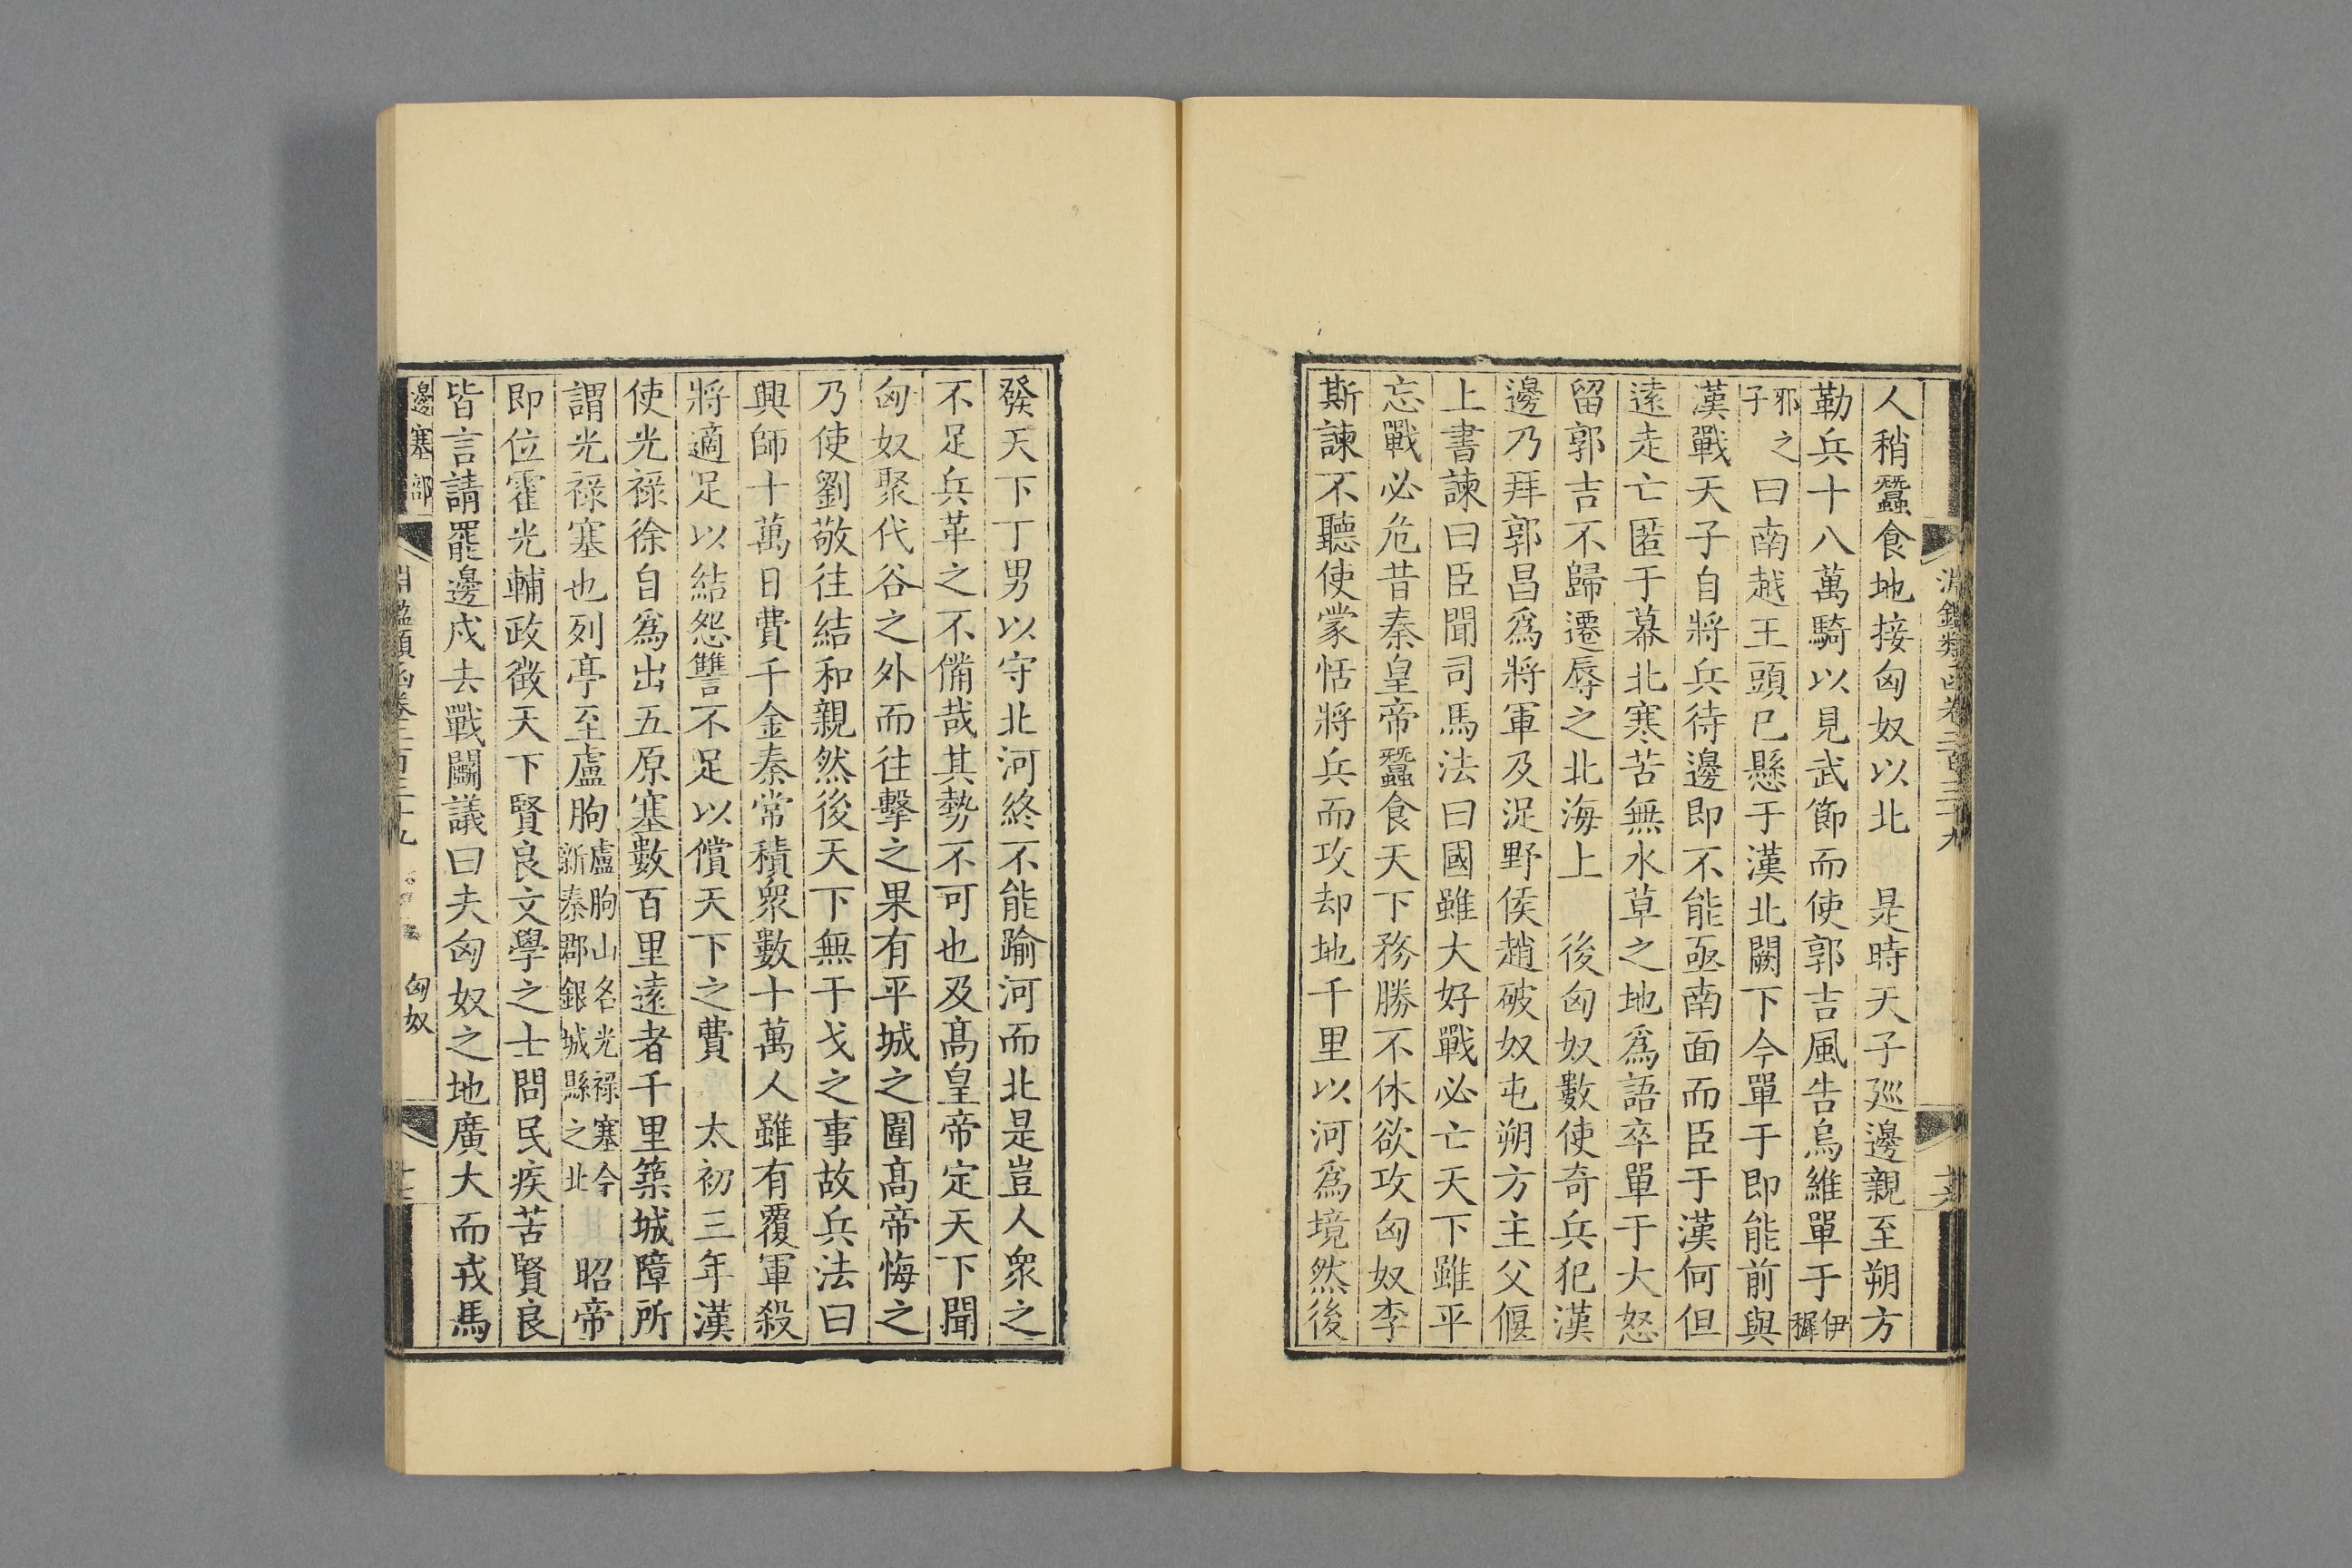 人稍蠶食地接匈奴以北　是時天子廵邊親至朔方
勒兵十八萬騎以見武節而使郭吉風告烏維單于伊穉
邪之子曰南越王頭已懸于漢北闕下今單于即能前與
漢戰天子自將兵待邊即不能亟南面而臣于漢何但
遠走亡匿于幕北寒苦無水草之地爲語卒單于大怒
留郭吉不歸遷辱之北海上　後匈奴數使奇兵犯漢
邊乃拜郭昌爲將軍及浞野侯趙破奴屯朔方主父偃
上書諫曰臣聞司馬法曰國雖大好戰必亡天下雖平
忘戰必危昔秦皇帝蠶食天下務勝不休欲攻匈奴李
斯諫不聽使蒙恬將兵而攻却地千里以河爲境然後
發天下丁男以守北河終不能踰河而北是豈人衆之
不足兵革之不備哉其勢不可也及髙皇帝定天下聞
匈奴聚代谷之外而往擊之果有平城之圍髙帝悔之
乃使劉敬往結和親然後天下無干戈之事故兵法曰
興師十萬日費千金秦常積衆數十萬人雖有覆軍殺
將適足以結怨讐不足以償天下之費　太初三年漢
使光祿徐自爲出五原塞數百里遠者千里築城障所
謂光祿塞也列亭至盧朐盧朐山名光祿塞今新秦郡銀城縣之北　昭帝
即位霍光輔政徵天下賢良文學之士問民疾苦賢良
皆言請罷邊戍去戰鬭議曰夫匈奴之地廣大而戎馬
邊塞部
匈奴